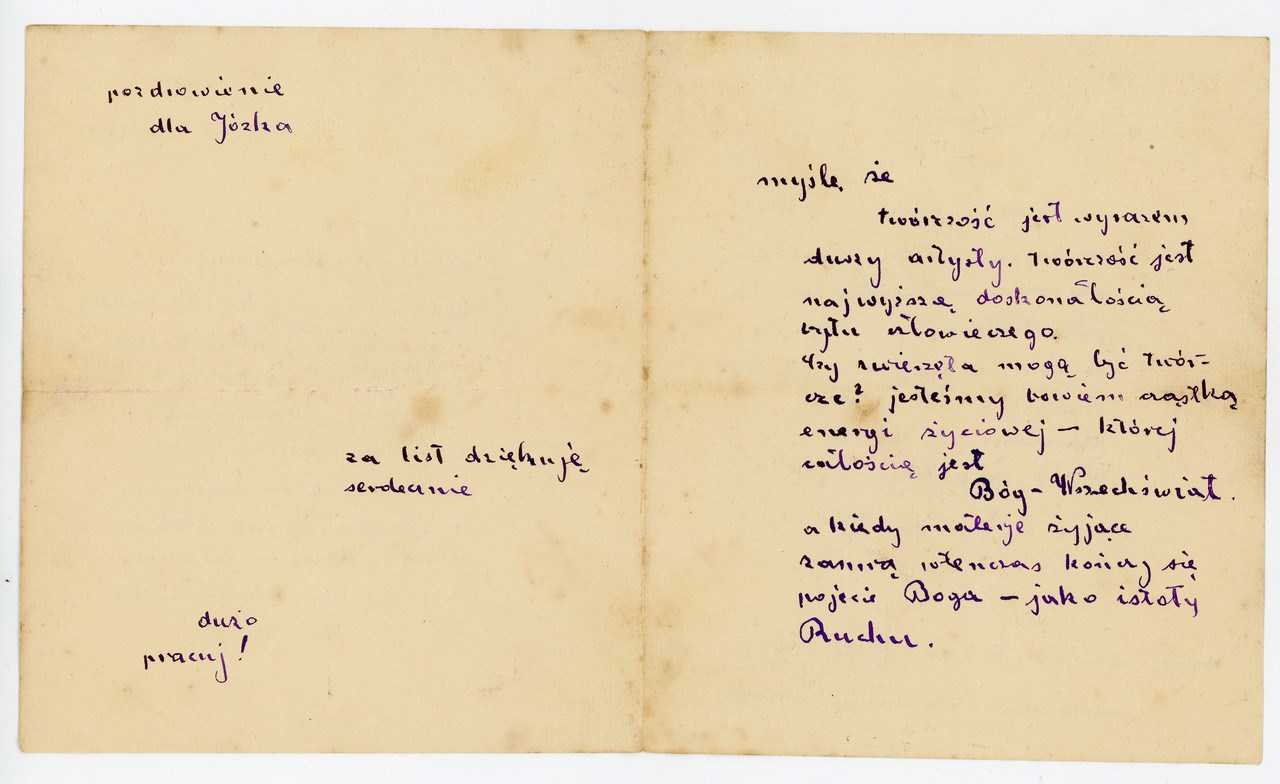 pozdrowienie
dla Józka
za list dziękuję
serdecznie
dużo
pracuj!
myślę że
twórczość jest wyrazem
duszy artysty. twórczość jest
najwyższą doskonałością
bytu człowieczego.
czy zwierzęta mogą być twór-
cze? jesteśmy bowiem cząstką
energi życiowej — której
całością jest
Bóg — Wszechświat.
a kiedy materje żyjące
zamrą wtenczas kończy się
pojęcie Boga — jako istoty
Ruchu.